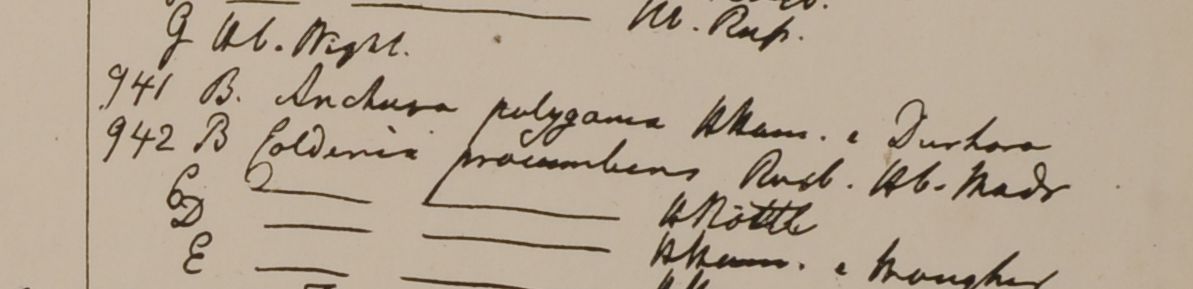 G Hb. Wight.
941 B. Anchusa polygama HHam. e Durhara
942 B Coldenia procumbens Roxb. Hb. Madr
C ? — — HRottl
D — — HHam. e Mongher
E — —